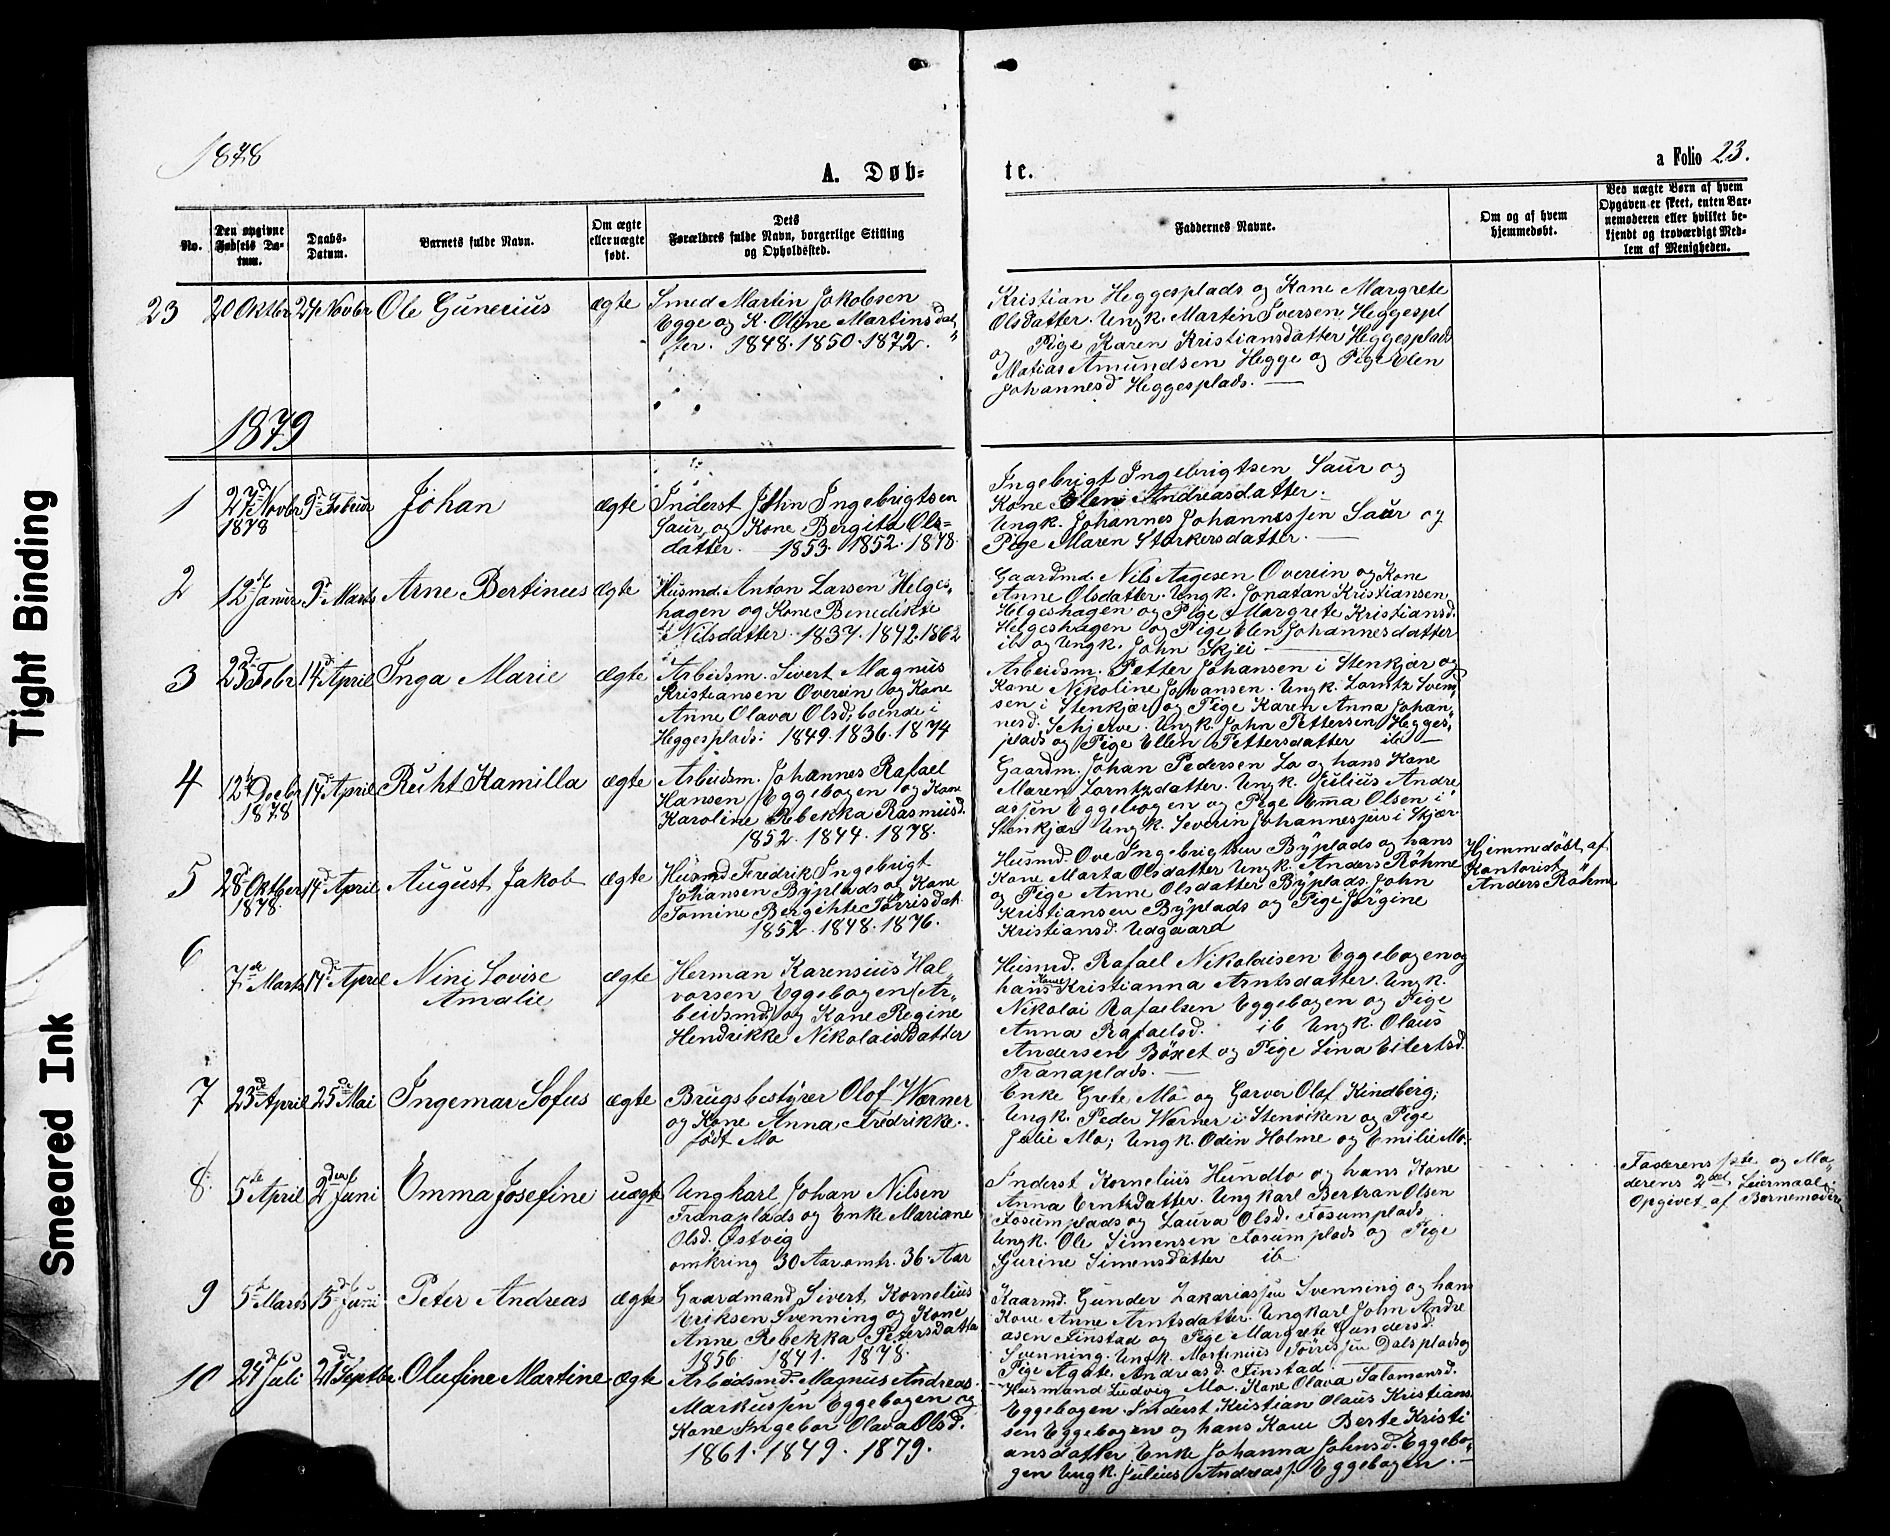 Tight Binding
Smeared Ink
1878
A. Døb-
te.
a Folio 23.
No.
Den opgivne
Fødsels Da-
tum.
Daabs-
Datum.
Barnets fulde Navn.
Om ægte
eller uægte
født.
Dets
Forældres fulde Navn, borgerlige Stilling
og Opholdssted.
Faddernes Navne.
Om og af hvem
hjemmedøbt.
Ved uægte Børn af hvem
Opgaven er skeet, enten Bar-
nemoderen eller hvilket be-
kjendt og troværdigt Med-
lem af Menigheden.
23
20 Oktbr
24 Novbr
Ole Gunerius
ægte
Smed Martin Jakobsen
Egge og K. Oline Martinsdat-
ter. 1848. 1850. 1872.
Kristian Heggesplads og Kone Margrete
Olsdatter. Ungk. Martin Iversen Heggespl
og Pige Karen Kristiansdatter Heggesplads
Matias Amundsen Hegge og Pige Elen
Johannesd Heggesplads.
1879
1
27d Novbr
1878
9d Februar
Johan
ægte
Inderst John Ingebrigtsen
Saur, og Kone Bergita Ols-
datter. 1853. 1852. 1878.
Ingebrigt Ingebrigtsen Saur og
Kone Elen Andreasdatter.
Ungk. Johannes Johannessen Saur og
Pige Maren Storkersdatter.
2
12te Januar
9d Marts
Arne Bertineus
ægte
Husmd. Anton Larsen Helges-
hagen og Kone Benedikte
Nilsdatter. 1837. 1842. 1862
Gaardmd. Nils Aagesen Overein og Kone
Anne Olsdatter. Ungk. Jonatan Kristiansen
Helgeshagen og Pige Margrete Kristiansd.
Helgeshagen og Pige Elen Johannesdatter
ib og Ungk. John Skjei
3
23d Febr
14d April
Inga Marie
ægte
Arbeidsm. Sivert Magnus
Kristiansen Overein og Kone
Anne Olava Olsd; boende i
Heggesplads: 1849. 1836. 1874
Arbeidsm. Petter Johansen i Stenkjær og
Kone Nikoline Johansen. Ungk. Lorntz Svend-
sen i Stenkjær og Pige Karen Anna Johan-
nesd. Schjerve. Ungk. John Pettersen Hegges-
plads og Pige Ellen Pettersdatter ib
4
12te Decbr
1878
14d April
Ruht Kamilla
ægte
Arbeidsm. Johannes Rafael
Hansen Eggebogen og Kone
Karoline Rebekka Rasmusd.
1852. 1844. 1878.
Gaardm. Johan Pedersen Lø og hans Kone
Maren Lorntzdatter. Ungk. Julius Andre
assen Eggebogen og Pige Emma Olsen i
Stenkjær Ungk. Severin Johannessen i Skjær
5
28d Oktber
1878.
14d April
August Jakob
ægte
Husmd Fredrik Ingebrigt
Johansen Byplads og Kone
Tomine Bergihte Torrisdat.
1852. 1848. 1876.
Husmd. Ove Ingebrigtsen Byplads og hans
Kone Marta Olsdatter Ungk. Anders Røhme
og Pige Anne Olsdatter Byplads. John
Kristiansen Byplads og Pige Jørgine
Kristiansd. Udgaard
Hjemmedøbt af
Kantorist
Anders Røhme
6
7de Marts
14d April
Nini Lovise
Amalie
ægte
Herman Karensius Hal-
vorsen Eggebogen (Ar-
beidsmd) og Kone Regine
Hendrikke Nikolaisdatter
Husmd. Rafael Nikolaisen Eggebogen og
hans Kone Kristianna Arntsdatter. Ungk.
Nikolai Rafaelsen Eggebogen og Pige
Anna Rafaelsd. ib Ungk. Olaus
Andersen Bøxet og Pige Lina Eilertsd.
Tranaplads.
7
23de April
25de Mai
Ingemar Sofus
ægte
Brugsbestyrer Olof Wærner
og Kone Anna Fredrikke.
født Mo
Enke Grete Mo og Garver Olaf Kindberg;
Ungk. Peder Wærner i Stenviken og Pige
Julie Mo; Ungk. Odin Holme og Emilie Mo.
8.
5te April
2den Juni
Emma Josefine
uægte
Ungkarl Johan Nilsen
Tranaplads og Enke Mariane
Olsd. Østvig
omkring 30 Aar omtr. 36 Aar
Inderst Kornelius Hundlo og hans Kone
Anna Erntsdatter. Ungkarl Bertran Olsen
Fosumplads og Laura Olsd. Fosumplads
Ungk. Ole Simensen Fosumplads og Pige
Gurine Simensdatter ib
Faderens 1ste og Mo-
derens 2det Leiermaal.
Opgivet af Barnemoderen
9
5te Marts
15de Juni
Peter Andreas
ægte
Gaardmand Sivert Kornelius
Eriksen Svenning og Kone
Anne Rebekka Petersdatter
1856. 1841. 1878.
Kaarmd. Gunder Zakariassen Svenning og hans
Kone Anne Arntsdatter. Ungkarl John Andre
asen Finstad og Pige Margrete Gundersd.
Svenning. Ungk. Mortinius Torissen Dalsplads og
Pige Agate Andreasd. Finstad.
10
24d Juli
21d Septbr
Olufine Martine
ægte
Arbeidsmd. Magnus Andreas
Markussen Eggebogen og
Kone Ingebor Olava Olsd.
1861. 1849. 1879.
Husmand Ludvig Mo. Kone Olava Salomonsd.
Eggebogen. Inderst Kristian Olaus Kristian
sen Eggebogen og hans Kone Berte Kristi
ansdatter. Enke Johanna Johnsd. Eggebo-
gen Ungk. Julius Andreass. Eggebogen.